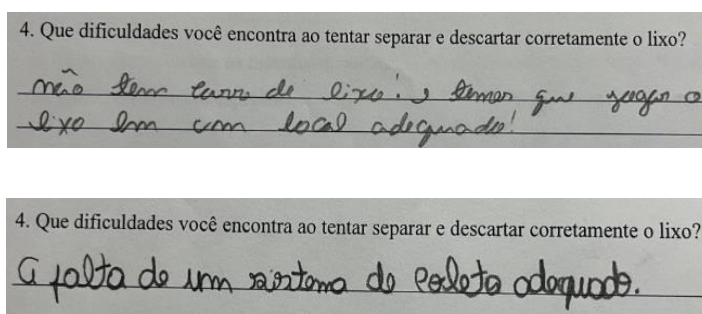 4. Que dificuldades você encontra ao tentar separar e descartar corretamente o lixo?
não tem carro de lixo! e temos que jogar o
lixo em um local adequado!
4. Que dificuldades você encontra ao tentar separar e descartar corretamente o lixo?
A falta de um sistema de coleta adequado.